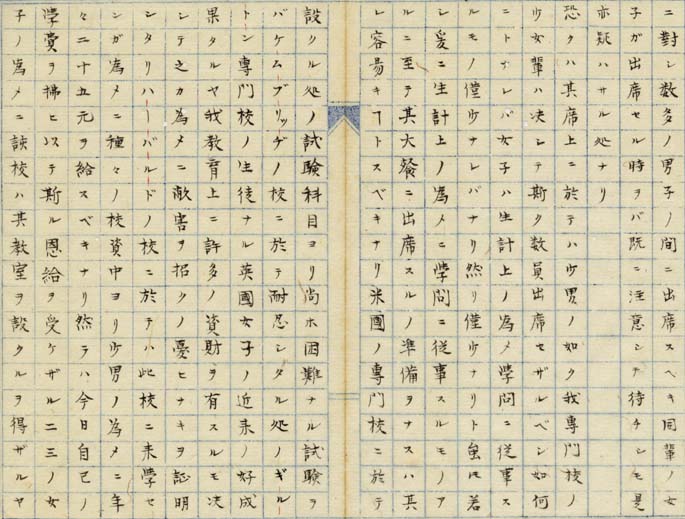 ニ對シ数多ノ男子ノ間ニ出席スベキ同輩ノ女
子ガ出席セル時ヲバ既ニ注意シテ待チシモ是
亦疑ハサル処ナリ
恐クハ其席上ニ於テハ少男ノ如ク我専門校ノ
少女輩ハ决シテ斯ク数員出席セザルベシ如何
ニトナレバ女子ハ生計上ノ為メ学問ニ従事ス
ルモノ僅少ナレバナリ然リ僅少ナリト虽モ若
シ爰ニ生計上ノ為メニ學問ニ従事スルモノア
ルニ至テ其大餐ニ出席スルノ準備ヲナスハ其
レ容昜キヿトスベキナリ米國ノ専門校ニ於テ
設クル処ノ試験科目ヨリ尚ホ困難ナル試験ヲ
バケムブリッヂノ校ニ於テ耐忍シタル処ノギル
トン専門校ノ生徒ナル英國女子ノ近来ノ好成
果タルヤ我教育上ニ許多ノ資財ヲ有スルモ决
シテ之カ為メニ敵害ヲ招クノ憂ヒナキヲ証明
シタリハーバルドノ校ニ於テハ此校ニ来学セ
シガ為メニ種々ノ校資中ヨリ少男ノ為メニ年
々二十五元ヲ給スベキナリ然ラハ今日自己ノ
学費ヲ拂ヒ以テ斯ル恩給ヲ受ケザル二三ノ女
子ノ為メニ該校ハ其教室ヲ設クルヲ得ザルヤ